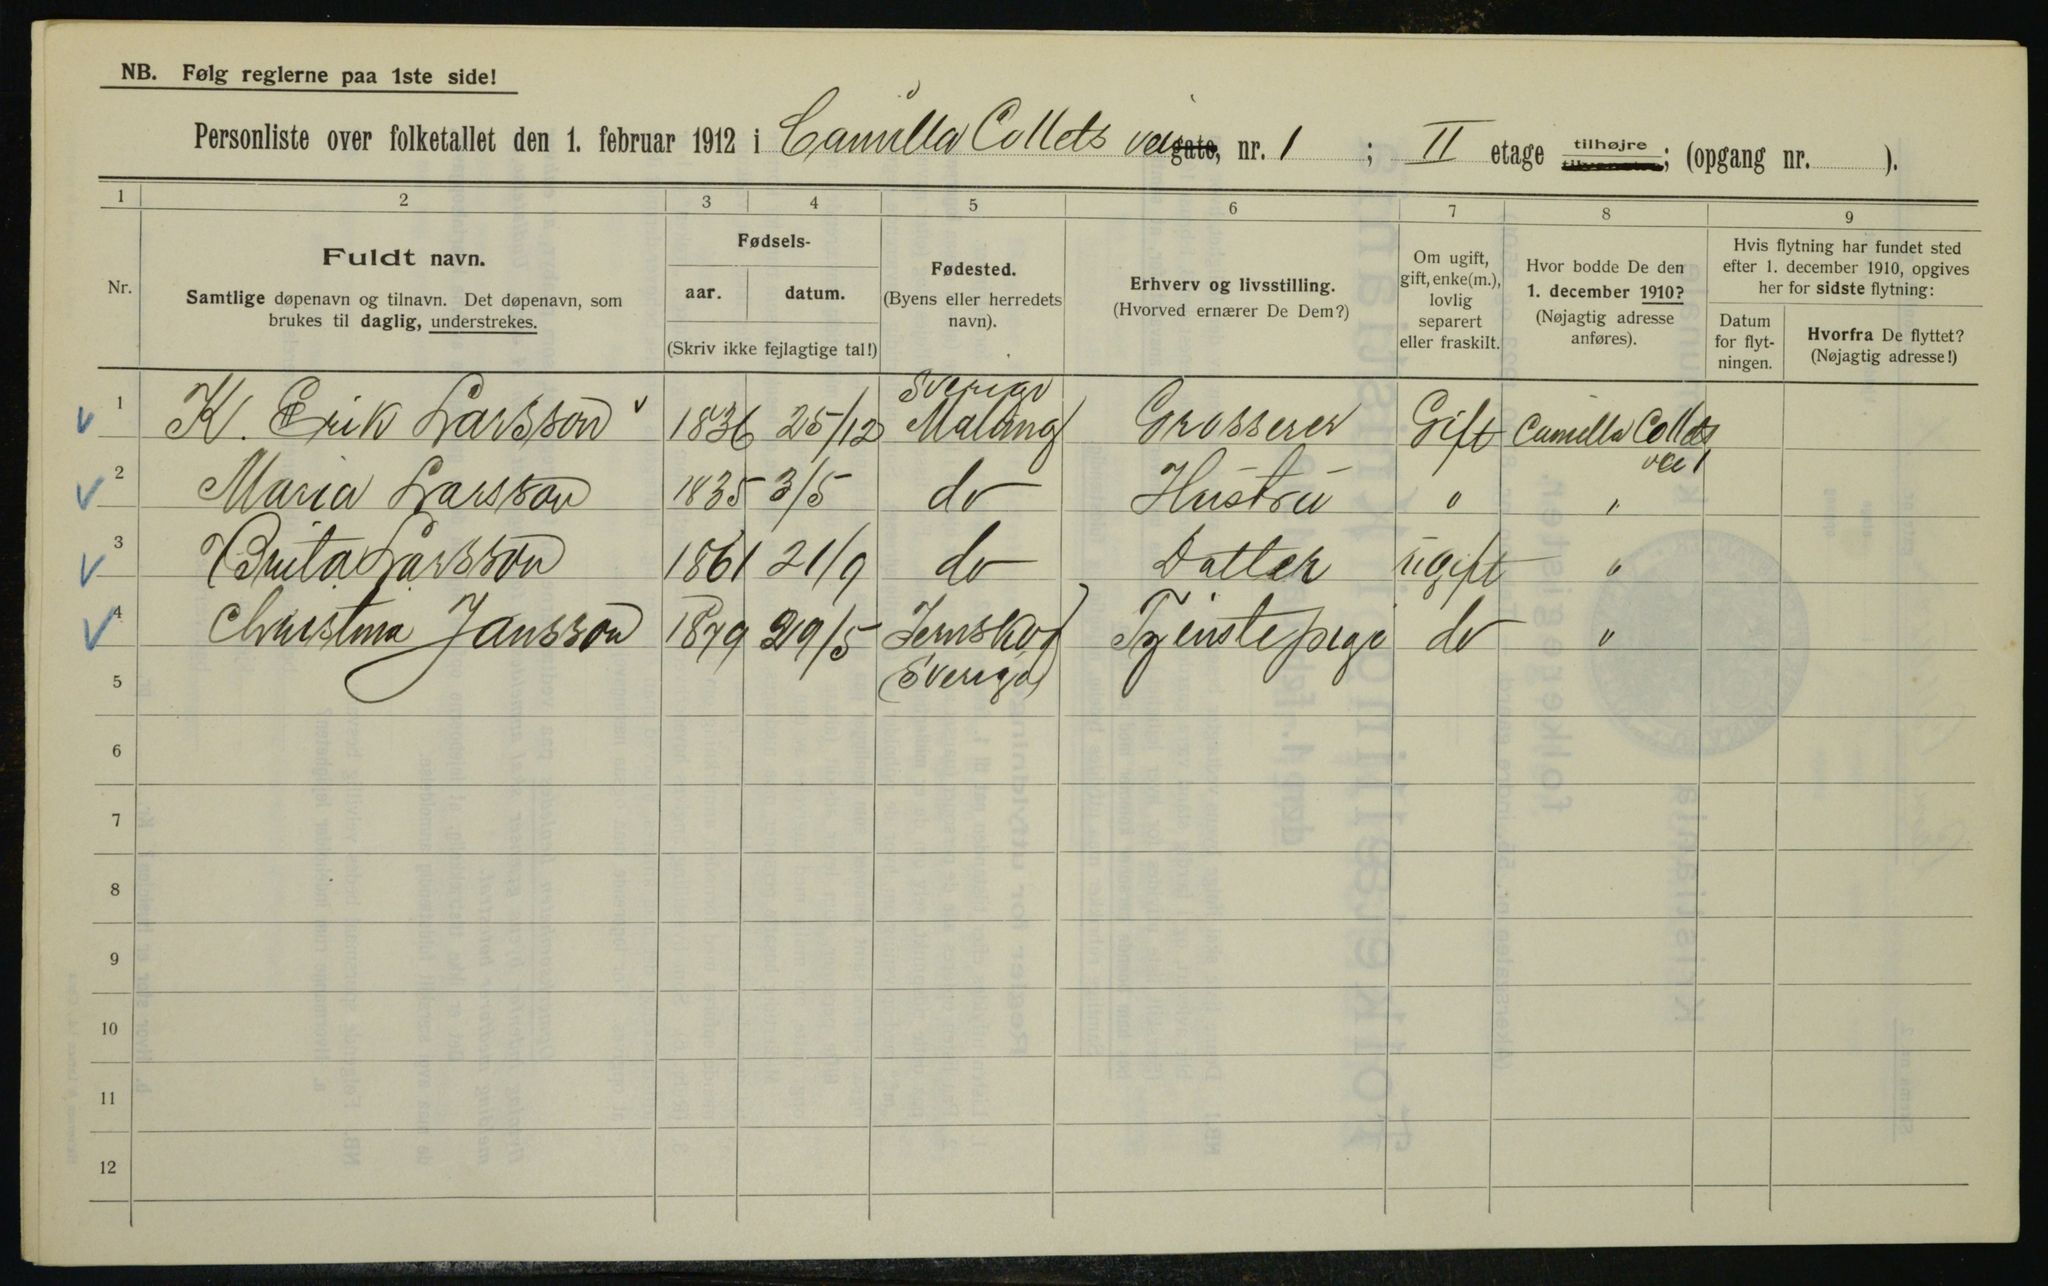 NB. Følg reglerne paa 1ste side!
Personliste over folketallet den 1. februar 1912 i Camilla Collets vei gate, nr. 1 ; II etage tilhøjre tilvenstre; (opgang nr. ).
1 2 3 4 5 6 7 8 9
Nr.
Fuldt navn.
Samtlige døpenavn og tilnavn. Det døpenavn, som
brukes til daglig, understrekes.
Fødsels-
aar. datum.
(Skriv ikke fejlagtige tal!)
Fødested.
(Byens eller herredets
navn).
Erhverv og livsstilling.
(Hvorved ernærer De Dem?)
Om ugift,
gift, enke(m.),
lovlig
separert
eller fraskilt.
Hvor bodde De den
1. december 1910?
(Nøjagtig adresse
anføres).
Hvis flytning har fundet sted
efter 1. december 1910, opgives
her for sidste flytning:
Datum
for flyt-
ningen.
Hvorfra De flyttet?
(Nøjagtig adresse!)
Sverige
1 K. Erik Larsson 1836 25/12 Malung Grosserer Gift Camilla Collets
vei 1
2 Maria Larsson 1835 3/5 do Hustru " "
3 Brita Larsson 1861 21/9 do Datter ugift "
4 Christina Jansson 1879 29/5 Jernskog Tjenstepige do "
5 (Sverige)
6
7
8
9
10
11
12